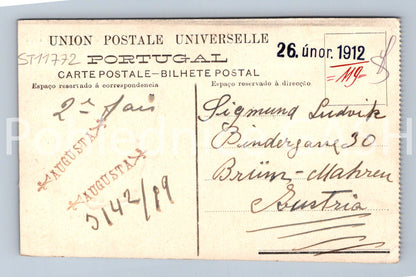 UNION POSTALE UNIVERSELLE
26. únor. 1912
ST11772
PORTUGAL
=119=
CARTE POSTALE—BILHETE POSTAL
Espaço reservado á correspondencia
Espaço reservado á direcção
2ª
Sigmund Ludvik
AUGUSTA
Bindergasse 30
AUGUSTA
Brünn-Mahren
5142/89
Austria